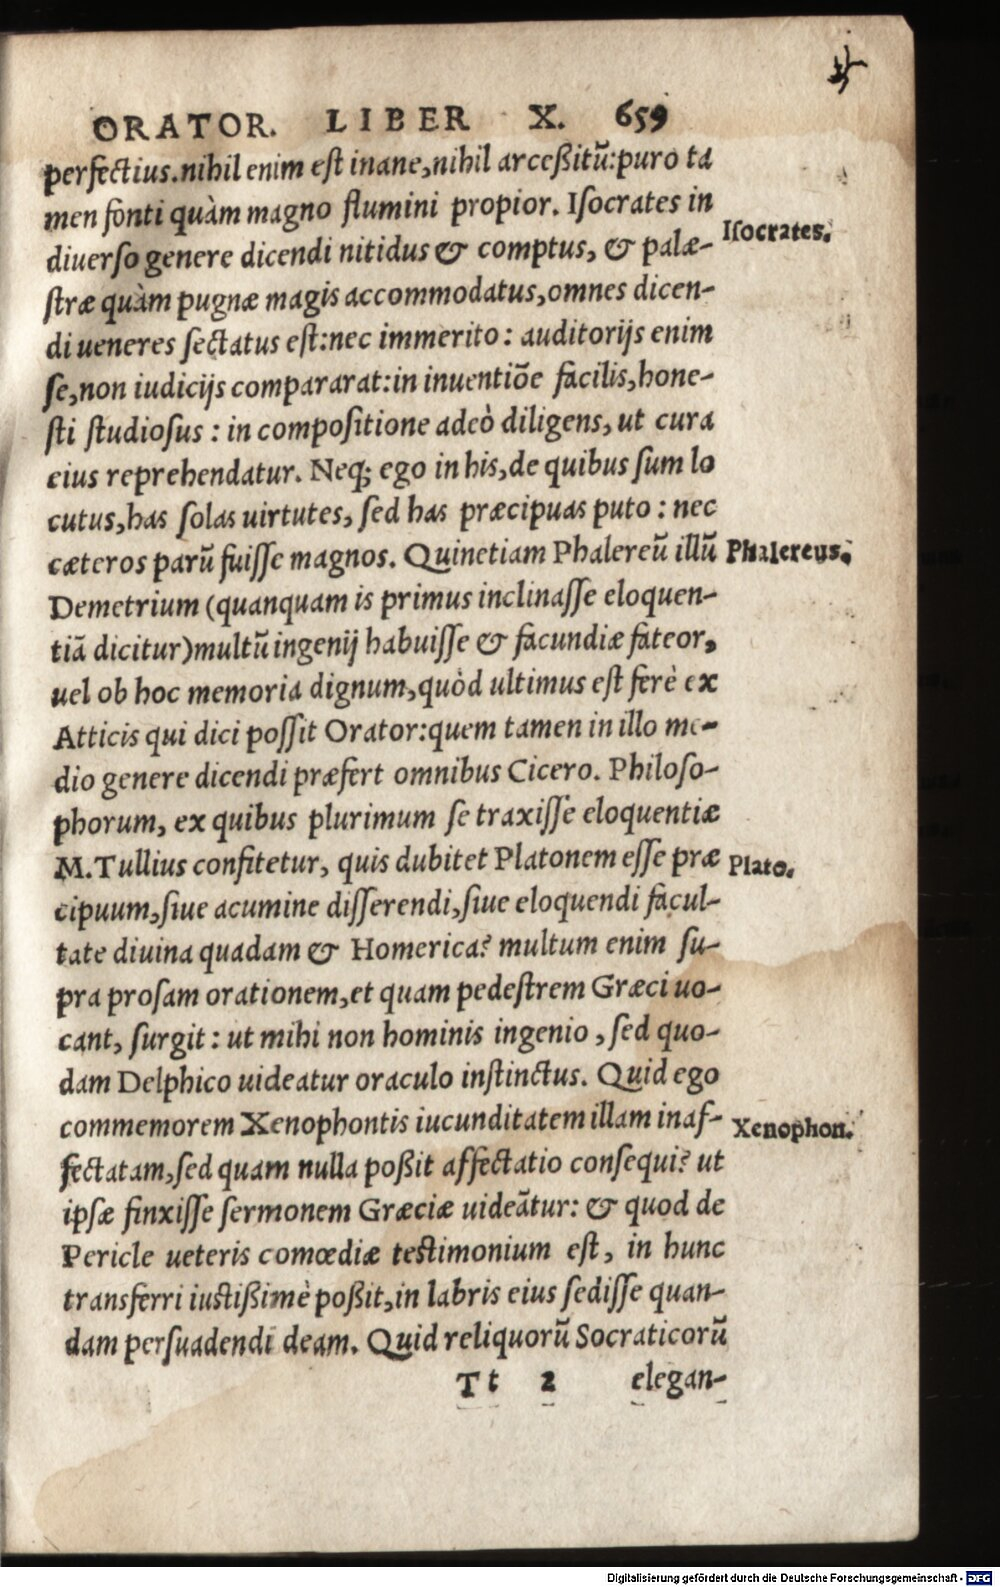 ORATOR. LIBER X. 659
perfectius.nihil enim est inane,nihil arceßitũ:puro ta
men fonti quàm magno flumini propior. Isocrates in
Isocrates.
diuerso genere dicendi nitidus & comptus, & palæ-
stræ quàm pugnæ magis accommodatus,omnes dicen-
di ueneres sectatus est:nec immerito: auditorijs enim
se,non iudicijs compararat:in inuentiõe facilis,hone-
sti studiosus : in compositione adeò diligens, ut cura
eius reprehendatur. Neq; ego in his,de quibus sum lo
cutus,has solas uirtutes, sed has præcipuas puto : nec
cæteros parũ fuisse magnos. Quinetiam Phalereũ illũ
Phalereus.
Demetrium (quanquam is primus inclinasse eloquen-
tiã dicitur)multũ ingenij habuisse & facundiæ fateor,
uel ob hoc memoria dignum,quòd ultimus est ferè ex
Atticis qui dici possit Orator:quem tamen in illo me-
dio genere dicendi præfert omnibus Cicero. Philoso-
phorum, ex quibus plurimum se traxisse eloquentiæ
M.Tullius confitetur, quis dubitet Platonem esse præ
Plato.
cipuum,siue acumine disserendi,siue eloquendi facul-
tate diuina quadam & Homerica? multum enim su-
pra prosam orationem,et quam pedestrem Græci uo-
cant, surgit : ut mihi non hominis ingenio , sed quo-
dam Delphico uideatur oraculo instinctus. Quid ego
commemorem Xenophontis iucunditatem illam inaf-
Xenophon.
fectatam,sed quam nulla poßit affectatio consequi? ut
ipsæ finxisse sermonem Græciæ uideãtur: & quod de
Pericle ueteris comœdiæ testimonium est, in hunc
transferri iustißimè poßit,in labris eius sedisse quan-
dam persuadendi deam. Quid reliquorũ Socraticorũ
Tt 2 elegan-
Digitalisierung gefördert durch die Deutsche Forschungsgemeinschaft - DFG